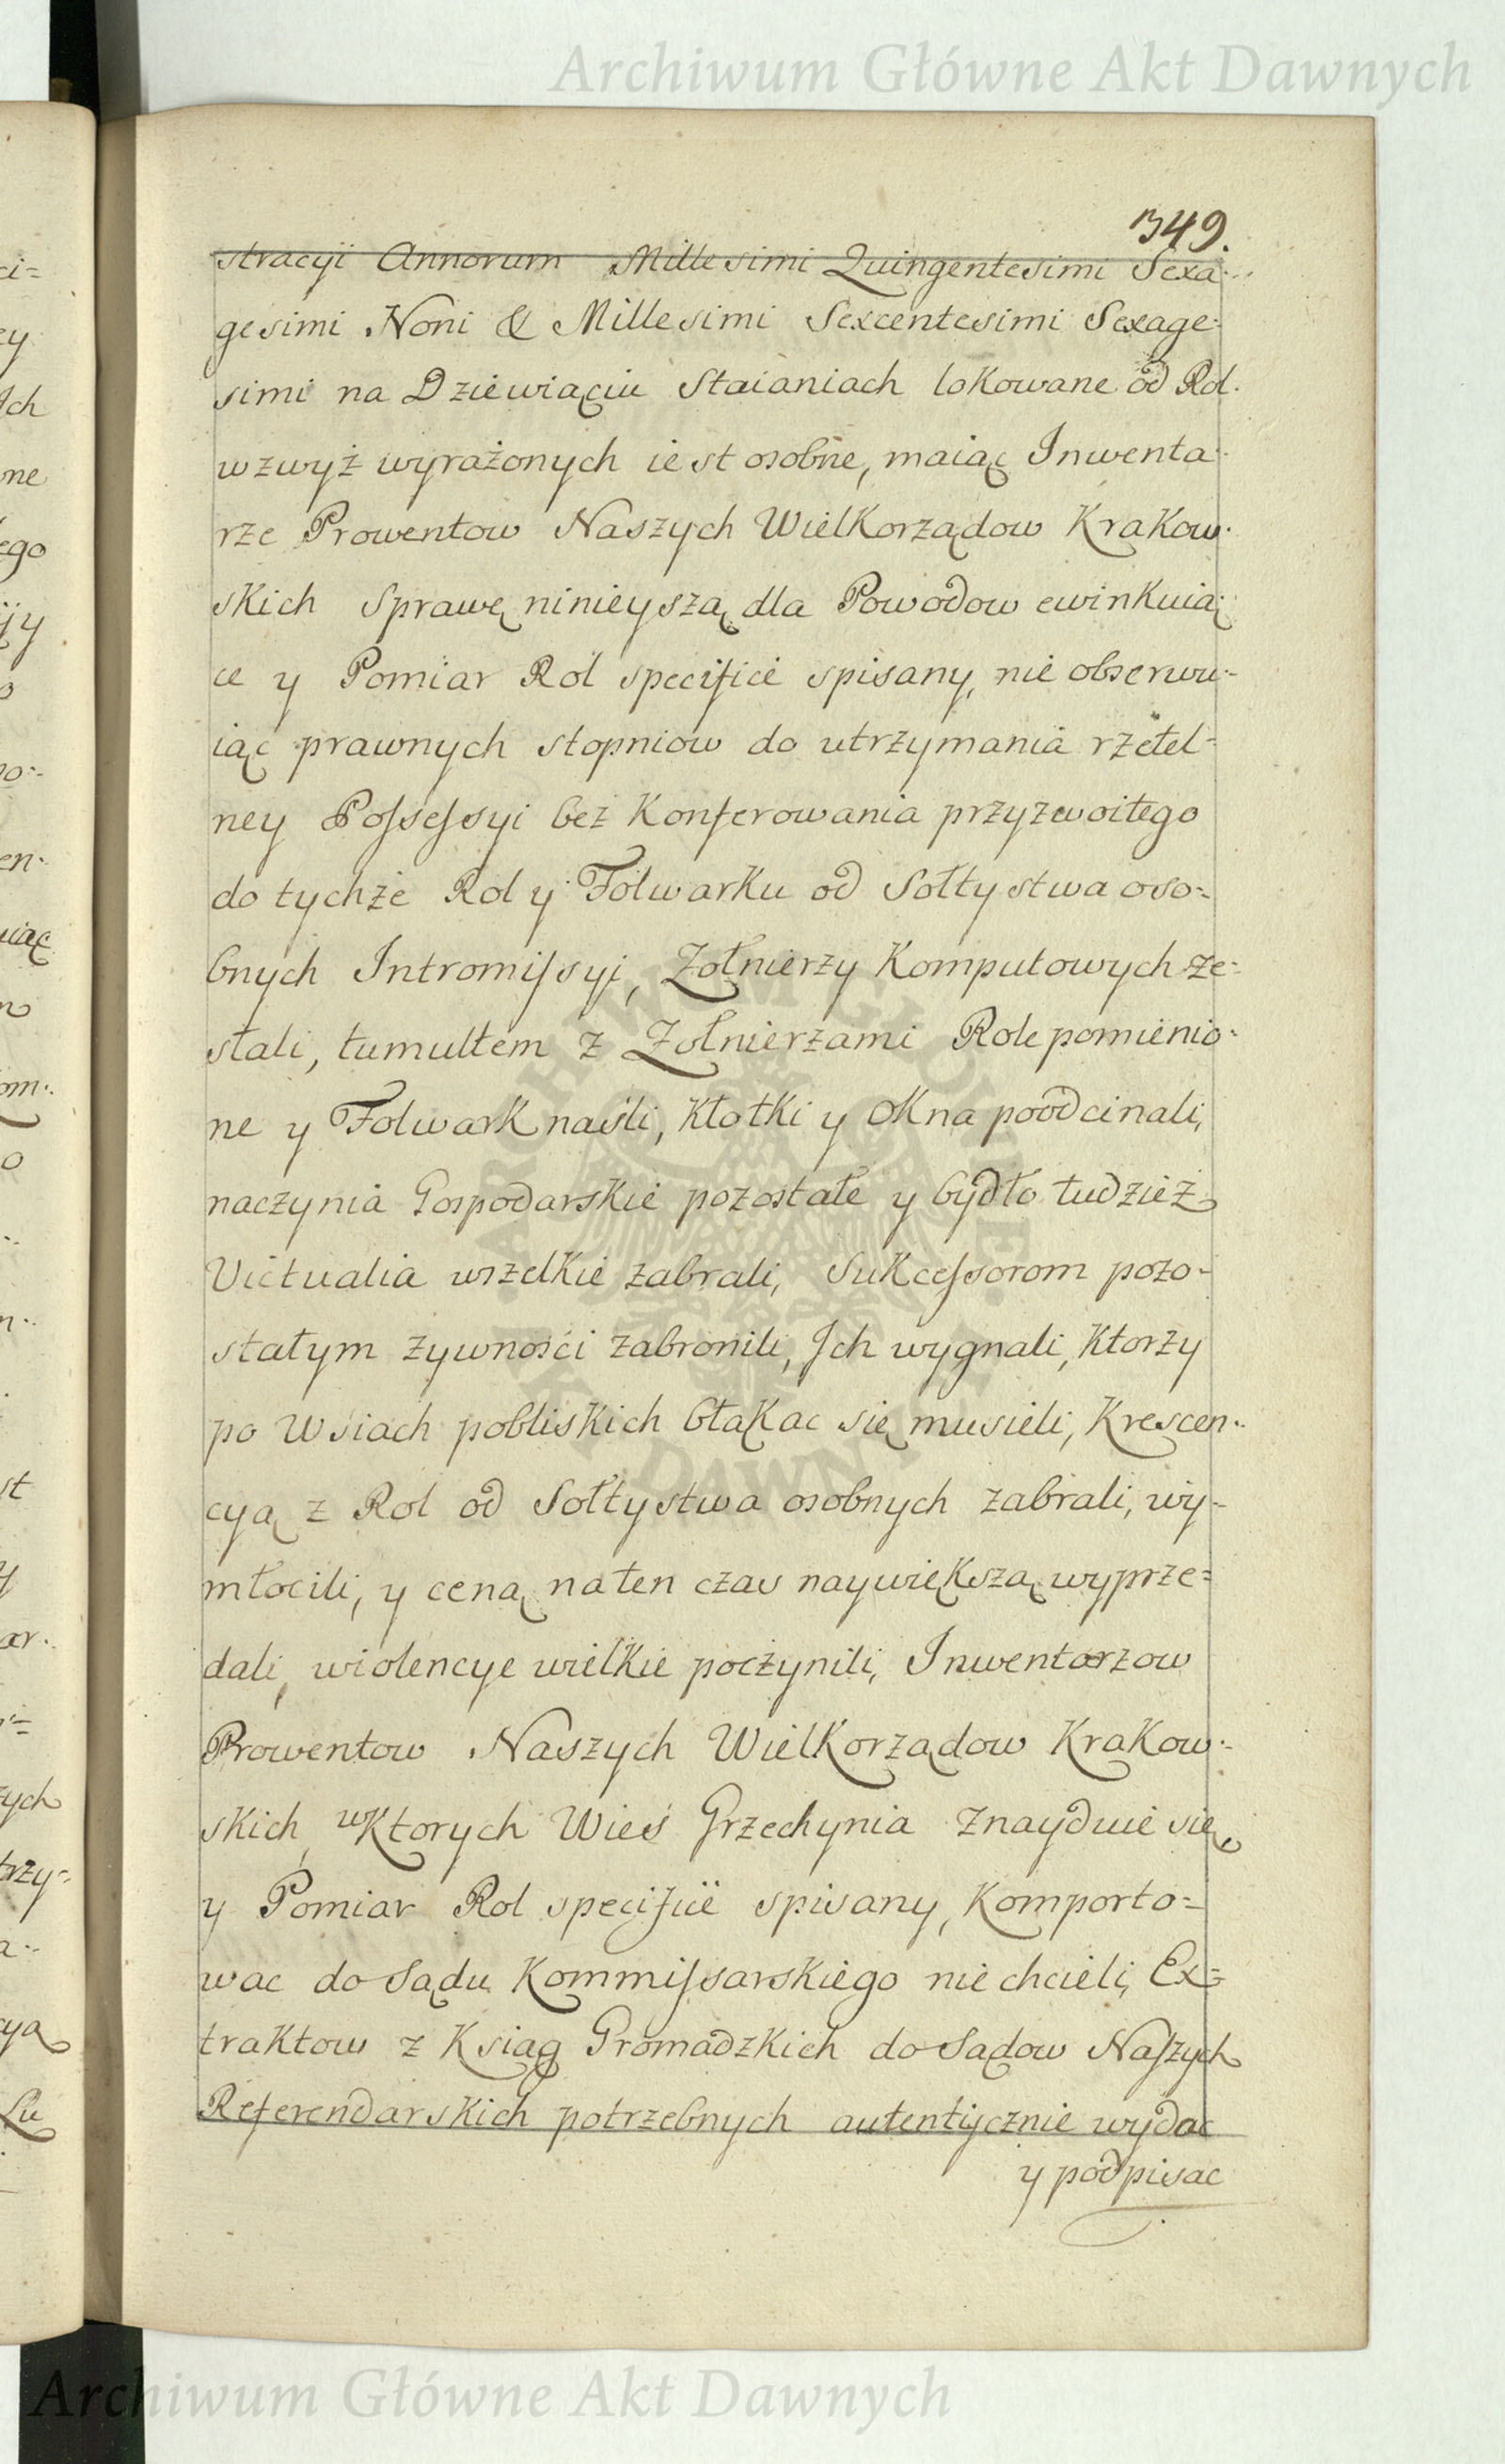 Archiwum Główne Akt Dawnych
349.
stracyi Annorum Millesimi Quingentesimi Sexa-
gesimi Noni & Millesimi Sexcentesimi Sexage-
simi na Dziewiąciu Staianiach lokowane od Rol
wzwyż wyrażonych iest osobne, maiąc Inwenta-
rze Prowentow Naszych Wielkorządow Krakow-
skich Sprawę ninieyszą dla Powodow ewinkuią-
ce y Pomiar Rol specifice spisany, nie obserwu-
iąc prawnych stopniow do utrzymania rzetel-
ney Possessyi bez Konferowania przyzwoitego
do tychże Rol y Folwarku od Sołtystwa oso-
bnych Intromissyi, Zołnierzy Komputowych ze-
stali, tumultem z Zołnierzami Role pomienio-
ne y Folwark naśli, Kłotki y Okna poodcinali,
naczynia Gospodarskie pozostałe y bydło tudzież
Victualia wszelkie zabrali, Sukcessorom pozo-
stałym żywności zabronili, Ich wygnali, Ktorzy
po Wsiach pobliskich błąkac się musieli, Krescen-
cyą z Rol od Sołtystwa osobnych zabrali, wy-
młocili, y ceną na ten czas naywiększą wyprze-
dali, wiolencye wielkie poczynili, Inwentarzow
Prowentow Naszych Wielkorządow Krakow-
skich, w Ktorych Wieś Grzechynia Znayduie się
y Pomiar Rol specifice spisany, Komporto-
wac do Sądu Kommissarskiego nie chcieli, Ex-
traktow z Ksiąg Gromadzkich do Sądow Naszych
Referendarskich potrzebnych autentycznie wydac
y podpisac
Archiwum Główne Akt Dawnych